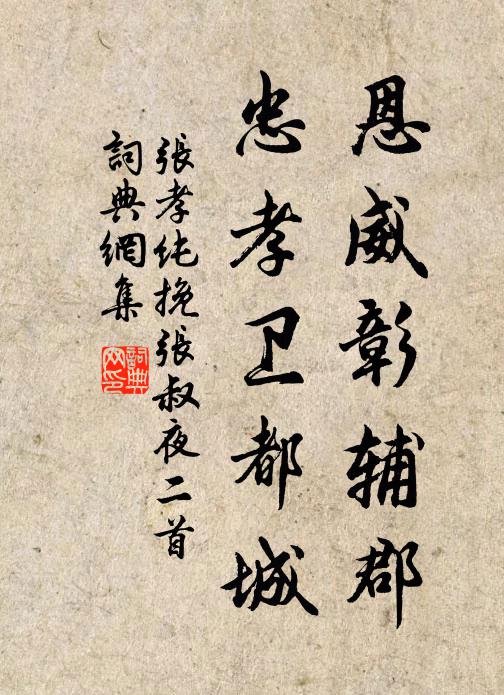 恩威彰辅郡
忠孝卫都城
張孝纯挽張叔夜二首
詞典網集
詞典网印